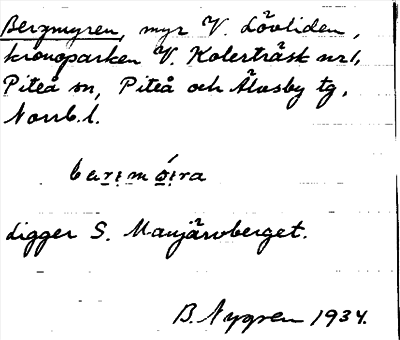 Bergmyren, myr V. Lövliden,
kronoparken V. Kolerträsk nr 1,
Piteå sn, Piteå och Älvsby tg,
Norrb. l.
Ligger S. Manjärvberget.
B. Nygren 1934.